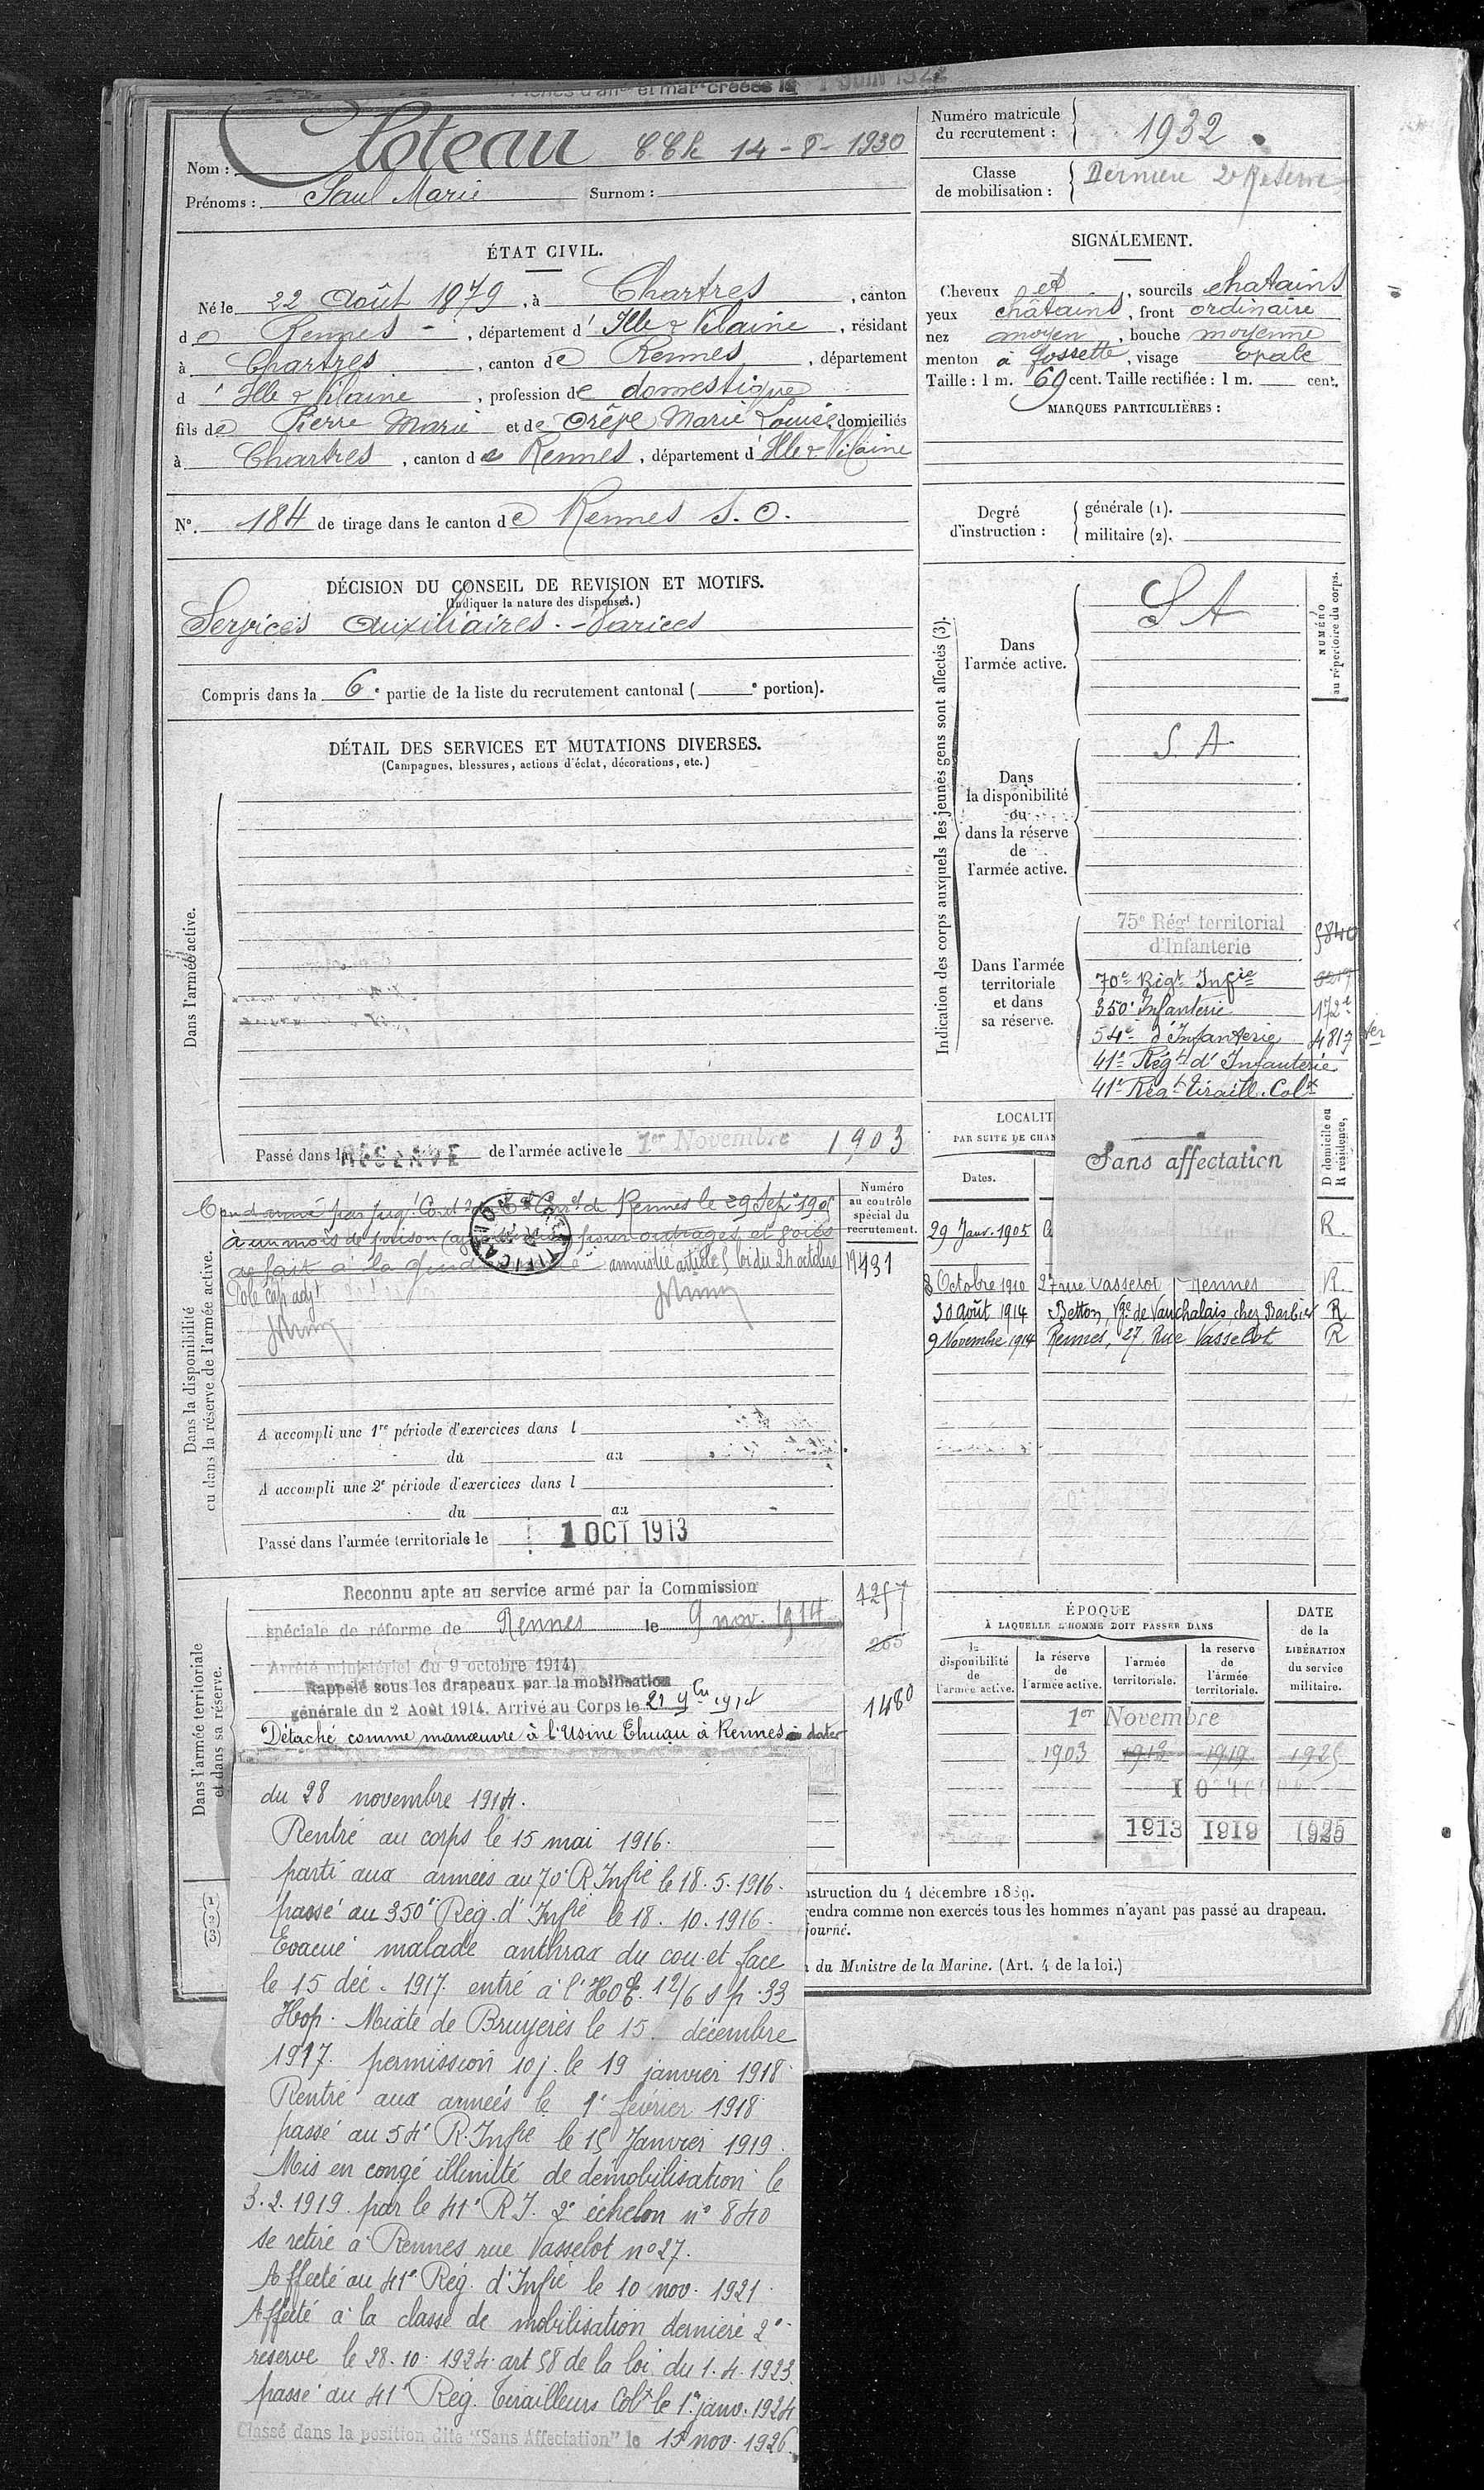 Fiches d'aff. et mat. créées le 1 JUIN 1922
Nom : Cloteau CCh 14-8-1930
Prénoms : Paul Marie Surnom :
Numéro matricule du recrutement : 1932
Classe de mobilisation : Dernière 2e Réserve
ÉTAT CIVIL.
Né le 22 Août 1879, à Chartres, canton
de Rennes, département d' Ille & Vilaine, résidant
à Chartres, canton de Rennes, département
d' Ille & Vilaine, profession de domestique
fils de Pierre Marie et de Orêve Marie Louise, domiciliés
à Chartres, canton de Rennes, département d' Ille & Vilaine
N° 184 de tirage dans le canton de Rennes S. O.
SIGNALEMENT.
Cheveux et, sourcils chatains
yeux châtains, front ordinaire
nez moyen, bouche moyenne
menton à fossette, visage ovale
Taille : 1 m. 69 cent. Taille rectifiée : 1 m. cent.
MARQUES PARTICULIÈRES :
Degré d'instruction :
générale (1).
militaire (2).
DÉCISION DU CONSEIL DE REVISION ET MOTIFS.
(Indiquer la nature des dispenses.)
Services Auxiliaires. - Varices
Compris dans la 6e partie de la liste du recrutement cantonal ( e portion).
DÉTAIL DES SERVICES ET MUTATIONS DIVERSES.
(Campagnes, blessures, actions d'éclat, décorations, etc.)
Dans l'armée active.
Passé dans la RÉSERVE de l'armée active le 1er Novembre 1903
Indication des corps auxquels les jeunes gens sont affectés (3).
NUMÉRO au répertoire du corps.
Dans l'armée active.
S A
Dans la disponibilité ou dans la réserve de l'armée active.
S. A
Dans l'armée territoriale et dans sa réserve.
75e Régt territorial d'Infanterie 5840
70e Régt Infie
350e Infanterie 172
54e d'Infanterie 4817 ter
41e Régt d'Infanterie
41e Régt Tiraill. Colx
Dans la disponibilité ou dans la réserve de l'armée active.
Numéro au contrôle spécial du recrutement.
Condamné par jugt Cont du Corel de Rennes le 29 Sepe 1905
à un mois de prison pour outrages et voies
de fait à la gendarmerie amnistié article 5 loi du 24 octobre
RECTIFICATION
A accompli une 1re période d'exercices dans l
du au
A accompli une 2e période d'exercices dans l
du au
Passé dans l'armée territoriale le 1 OCT 1913
LOCALIT
PAR SUITE DE CHAN
Dates.
D domicile ou R résidence,
Sans affectation
29 Janv. 1905 R.
8 Octobre 1910 27 rue Vasselot Rennes R.
30 août 1914 Betton, Vge de Vauchalais, chez Barbier R
9 Novembre 1914 Rennes, 27, Rue Vasselot R
Dans l'armée territoriale et dans sa réserve.
Reconnu apte au service armé par la Commission
spéciale de réforme de Rennes le 9 nov. 1914
Arrêté ministériel du 9 octobre 1914)
Rappelé sous les drapeaux par la mobilisation
générale du 2 Août 1914. Arrivé au Corps le 21 9bre 1914
1480
Détaché comme manœuvre à l'Usine Thuau à Rennes à dater
du 28 novembre 1914.
Rentré au corps le 15 mai 1916.
parti aux armées au 70e R Infie le 18.5.1916.
passé au 350e Rég. d'Infie le 18.10.1916.
Evacué malade anthrax du cou et face
le 15 déc. 1917. entré à l'HOE 12/6 s p. 33
Hop. Mixte de Bruyères le 15 décembre
1917. permission 10 j. le 19 janvier 1918
Rentré aux armées le 1er février 1918
passé au 54e R. Infie le 15 Janvier 1919.
Mis en congé illimité de démobilisation le
3.2.1919. par le 41e R.I. 2e échelon n° 840
se retire à Rennes rue Vasselot n° 27.
Affecté au 41e Rég. d'Infie le 10 nov. 1921.
Affecté à la classe de mobilisation dernière 2e
réserve le 28.10.1924. art 58 de la loi du 1.4.1923.
passé au 41e Rég. Tirailleurs Colx le 1er janv. 1924
Classé dans la position dite "Sans Affectation" le 15 nov. 1926.
ÉPOQUE
À LAQUELLE L'HOMME DOIT PASSER DANS
DATE de la LIBÉRATION du service militaire.
la disponibilité de l'armée active.
la réserve de l'armée active.
l'armée territoriale.
la reserve de l'armée territoriale.
1er Novembre
1903 1913 1919 1925
1913 1919
nstruction du 4 décembre 1889.
endra comme non exercés tous les hommes n'ayant pas passé au drapeau.
journé.
du Ministre de la Marine. (Art. 4 de la loi.)